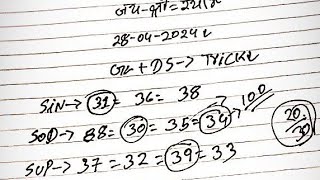 28-04-2024
GL + DS → Trickt
SIN → 31 = 36 = 38
100
SOD → 88 = 30 = 35 = 34
20/30
SUP → 37 = 32 = 39 = 33